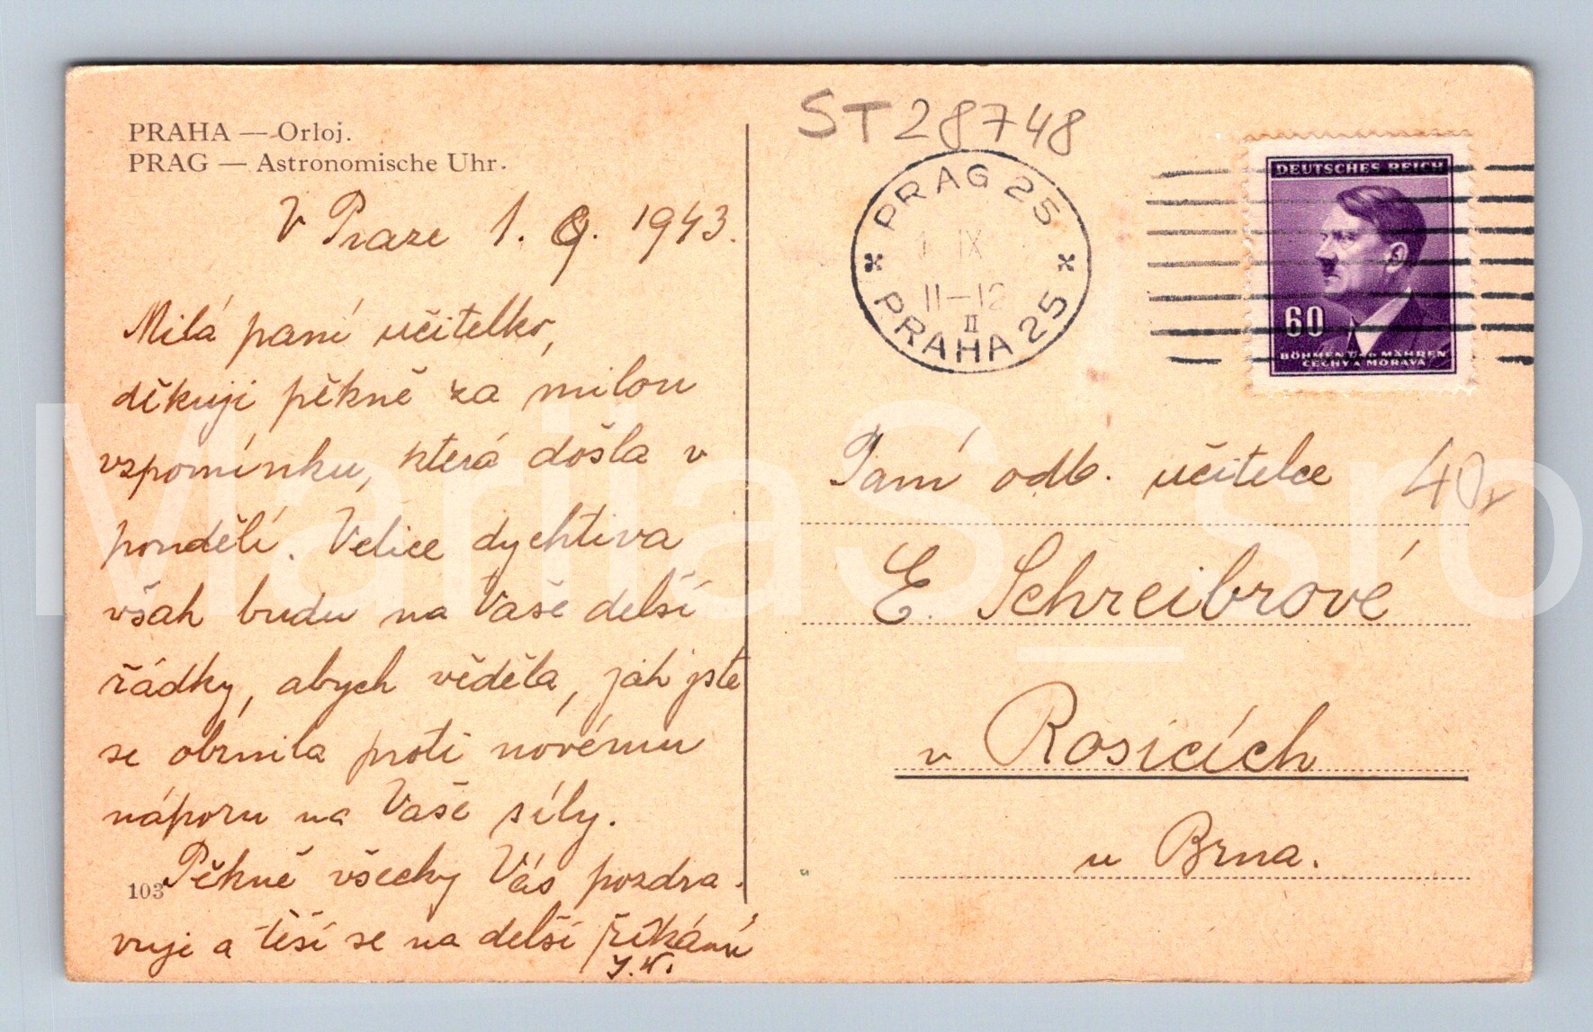 PRAHA — Orloj.
PRAG — Astronomische Uhr.
V Praze 1. 9. 1943.
Milá paní učitelko,
děkuji pěkně za milou
vzpomínku, která došla v
pondělí. Velice dychtiva
však budu na Vaše delší
řádky, abych věděla, jak jste
se obrnila proti novému
náporu na Vaše síly.
Pěkně všecky Vás pozdra-
vuje a těší se na delší říkání
103
ST28748
PRAG 25
1 IX
11-12
II
PRAHA 25
DEUTSCHES REICH
60
BÖHMEN UND MÄHREN
ČECHY A MORAVA
Paní odb. učitelce
40,
E. Schreibrové
v Rosicích
u Brna.
MartiaS_sro